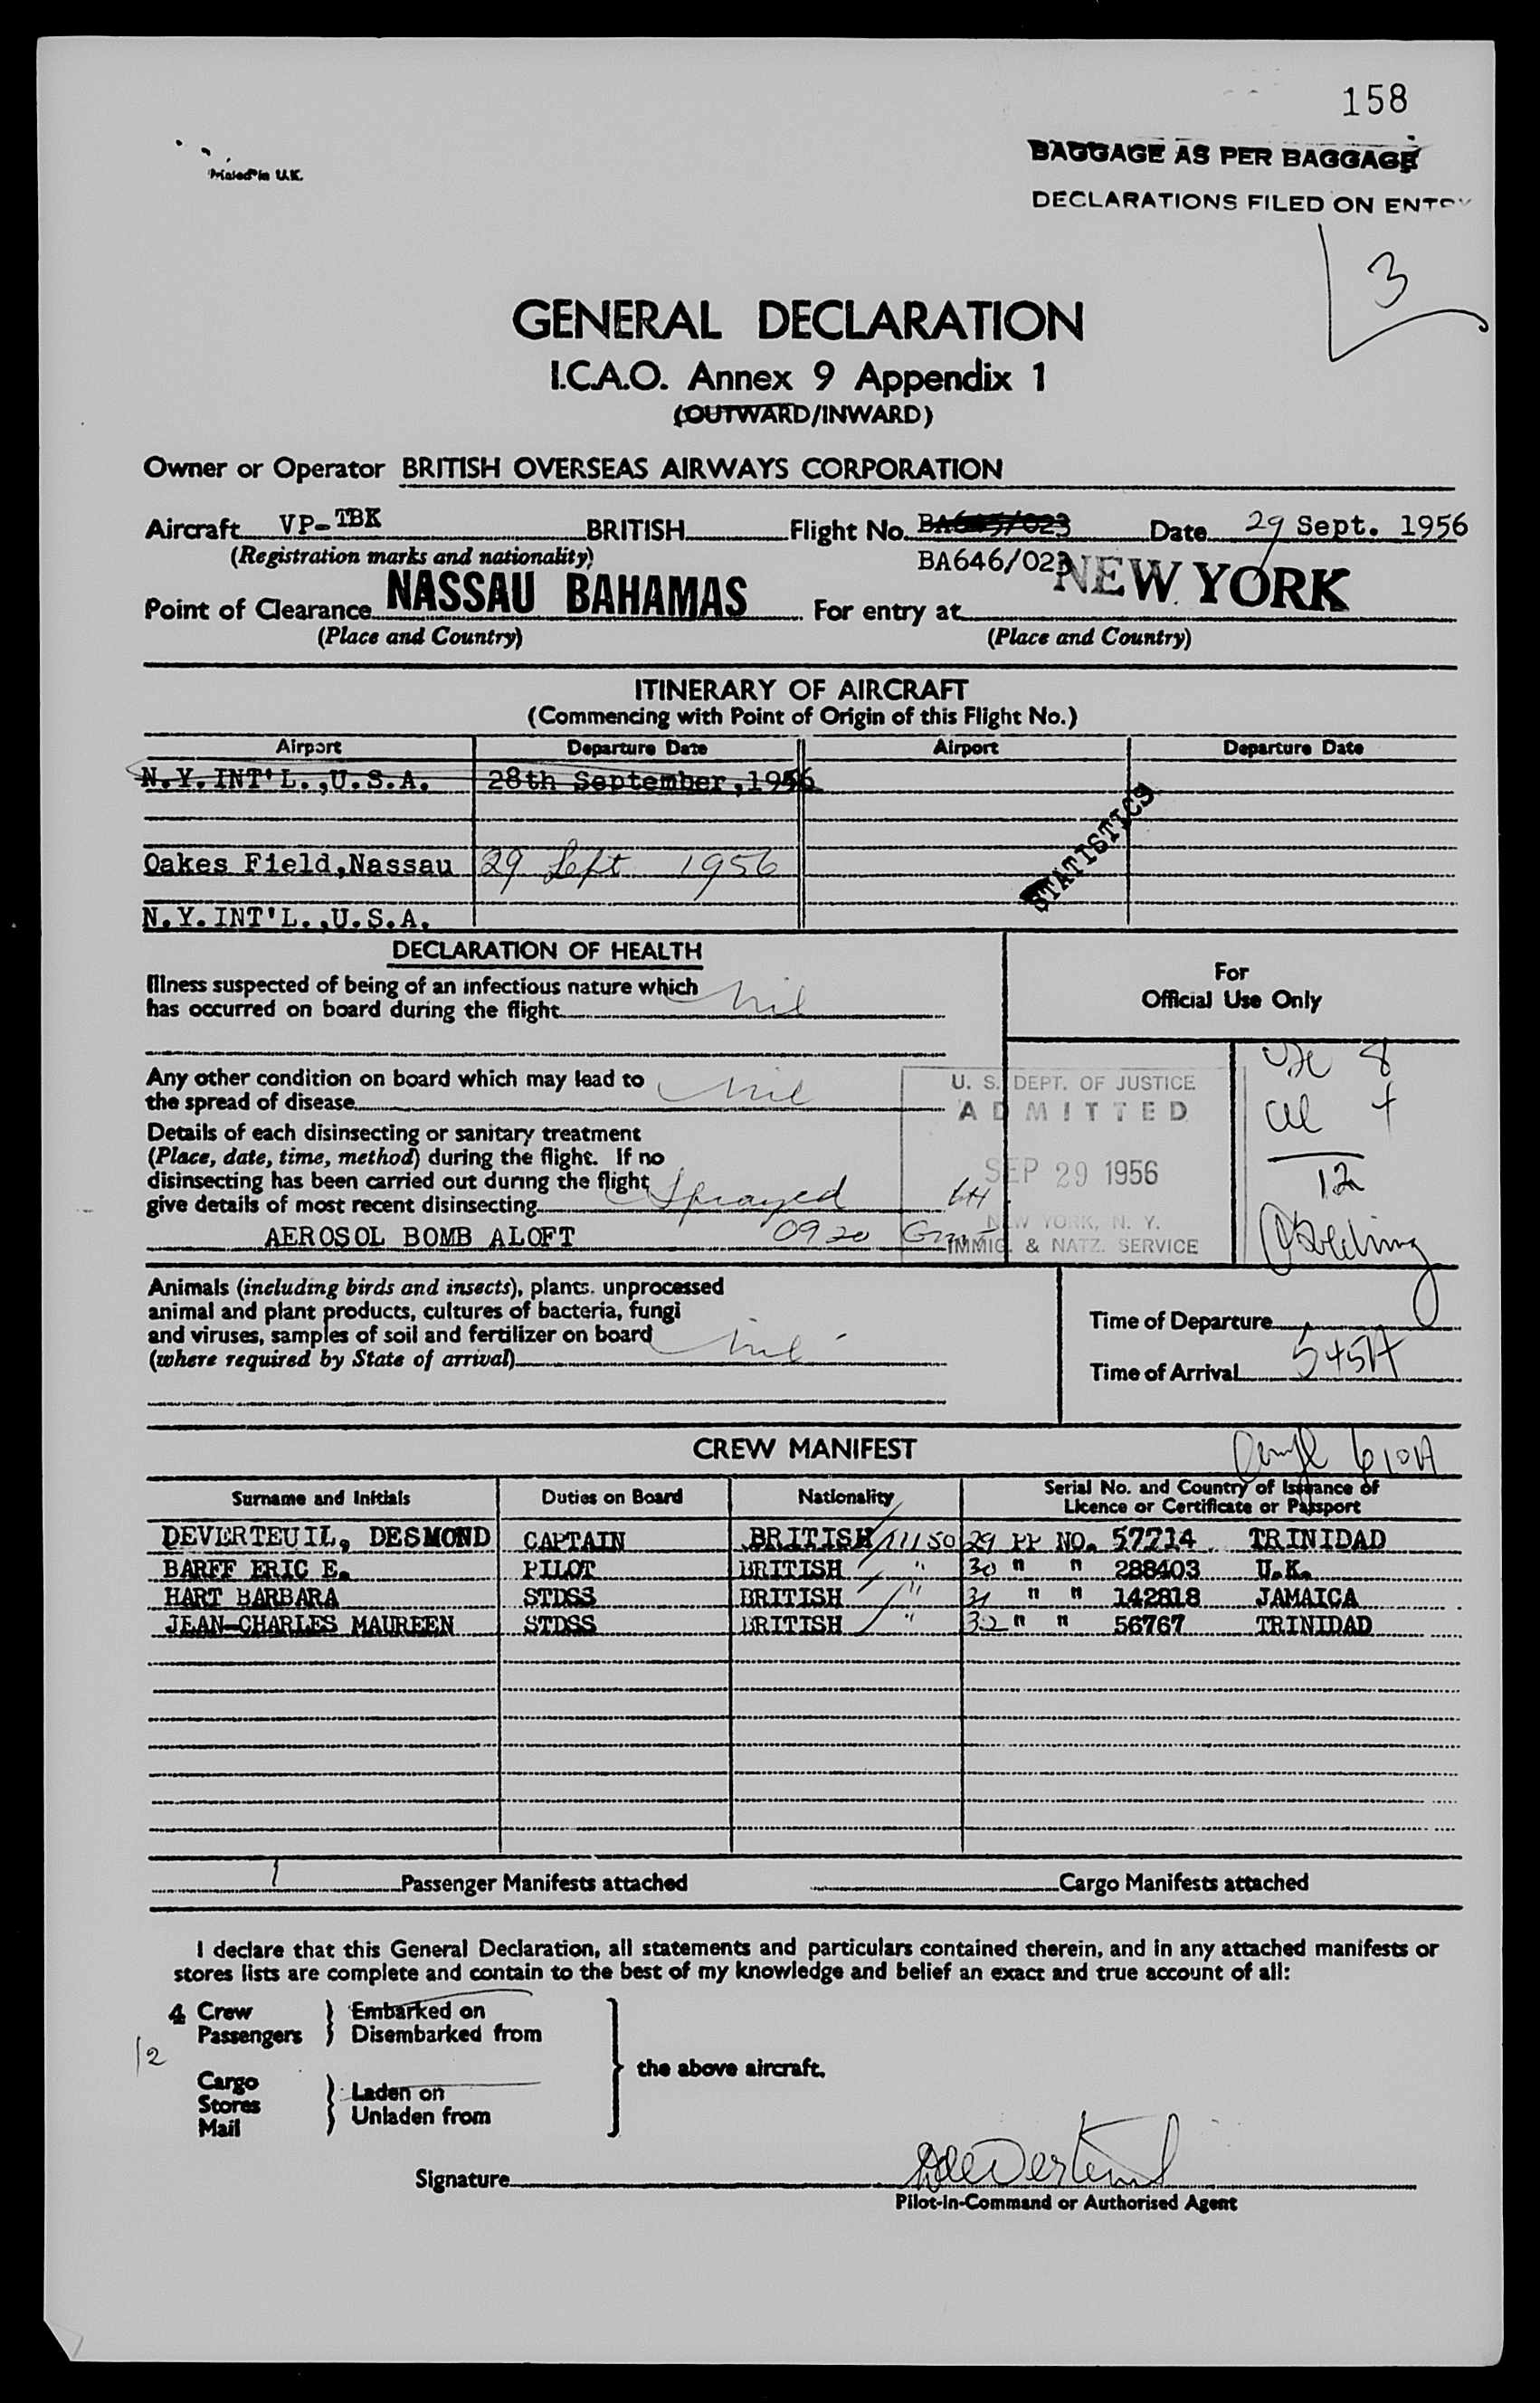 158
Printed in U.K.
BAGGAGE AS PER BAGGAGE
DECLARATIONS FILED ON ENTRY
3
GENERAL DECLARATION
I.C.A.O. Annex 9 Appendix 1
(OUTWARD/INWARD)
Owner or Operator BRITISH OVERSEAS AIRWAYS CORPORATION
Aircraft VP-TBK BRITISH Flight No. BA645/023 Date 29 Sept. 1956
(Registration marks and nationality) BA646/023
Point of Clearance NASSAU BAHAMAS For entry at NEW YORK
(Place and Country) (Place and Country)
ITINERARY OF AIRCRAFT
(Commencing with Point of Origin of this Flight No.)
Airport Departure Date Airport Departure Date
N.Y.INT'L.,U.S.A. 28th September,1956
STATISTICS
Oakes Field,Nassau 29 Sept 1956
N.Y.INT'L.,U.S.A.
DECLARATION OF HEALTH
For
Official Use Only
Illness suspected of being of an infectious nature which
has occurred on board during the flight nil
Any other condition on board which may lead to
the spread of disease nil
U. S. DEPT. OF JUSTICE
ADMITTED
SEP 29 1956
NEW YORK, N. Y.
IMMIG. & NATZ. SERVICE
8
4
12
Details of each disinsecting or sanitary treatment
(Place, date, time, method) during the flight. If no
disinsecting has been carried out during the flight
give details of most recent disinsecting Sprayed
AEROSOL BOMB ALOFT 0920 Gmt
Animals (including birds and insects), plants, unprocessed
animal and plant products, cultures of bacteria, fungi
and viruses, samples of soil and fertilizer on board
(where required by State of arrival) nil
Time of Departure
Time of Arrival 545A
CREW MANIFEST 610A
Surname and Initials Duties on Board Nationality Serial No. and Country of Issuance of
Licence or Certificate or Passport
DEVERTEUIL, DESMOND CAPTAIN BRITISH 11150 29 PP NO. 57714 TRINIDAD
BARFF ERIC E. PILOT BRITISH " 30 " " 288403 U.K.
HART BARBARA STDSS BRITISH " 31 " " 142818 JAMAICA
JEAN-CHARLES MAUREEN STDSS BRITISH " 32 " " 56767 TRINIDAD
1 Passenger Manifests attached Cargo Manifests attached
I declare that this General Declaration, all statements and particulars contained therein, and in any attached manifests or
stores lists are complete and contain to the best of my knowledge and belief an exact and true account of all:
4 Crew Embarked on
Passengers Disembarked from
12
the above aircraft.
Cargo
Stores
Mail
Laden on
Unladen from
Signature
Pilot-in-Command or Authorised Agent